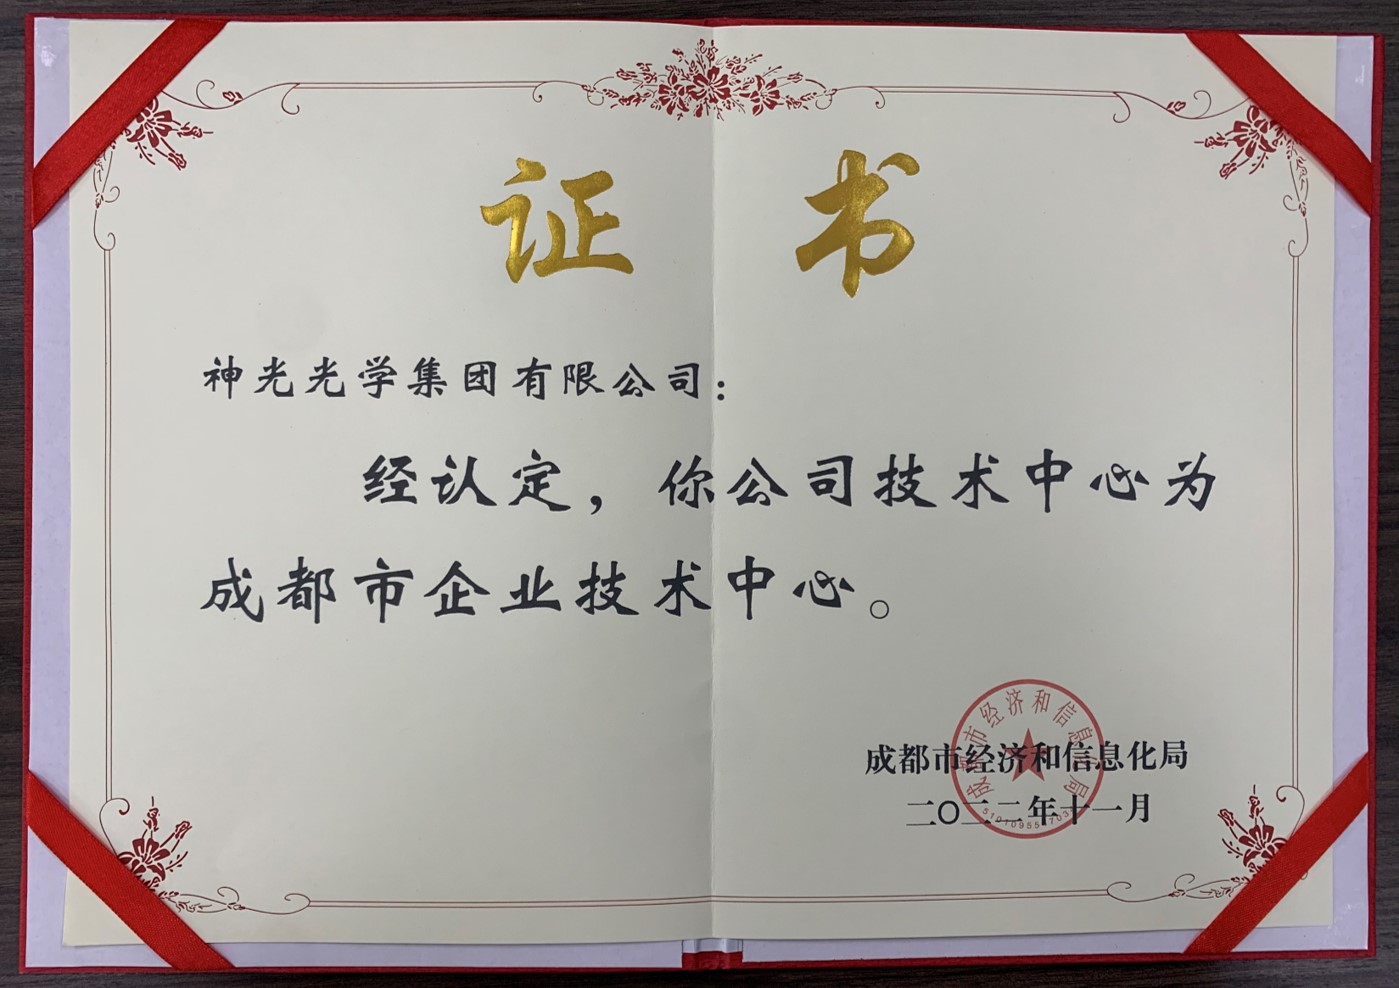 证书
神光光学集团有限公司：
经认定，你公司技术中心为
成都市企业技术中心。
成都市经济和信息化局
二〇二二年十一月
成都市经济和信息化局